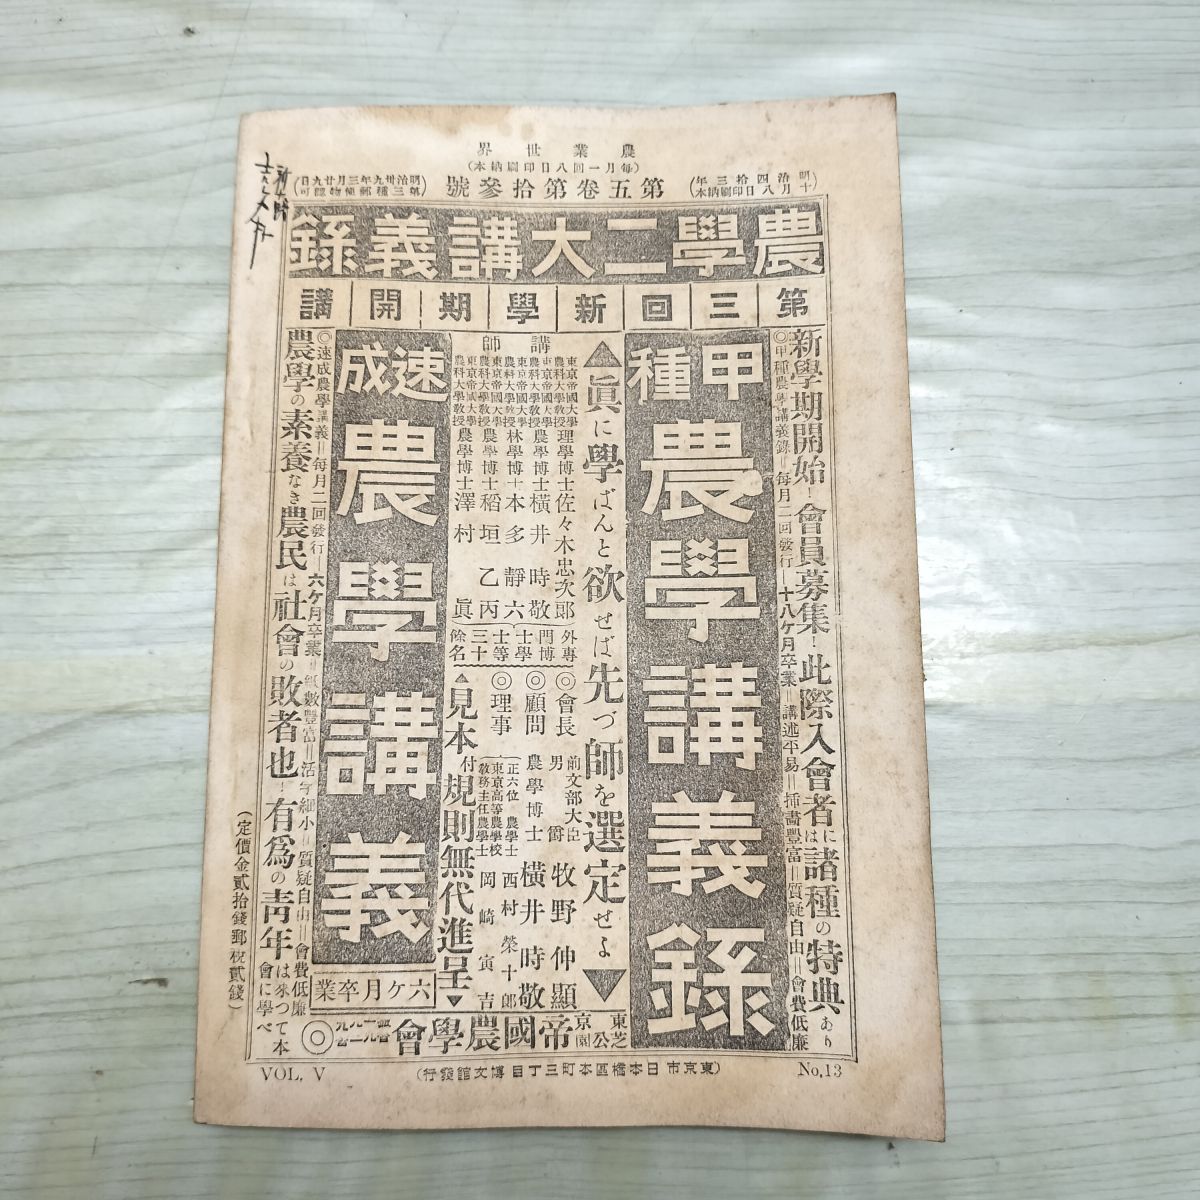 農業世界
(毎月一回八日印刷納本)
明治四拾三年
十月八日印刷納本
第五卷第拾參號
明治卅九年三月廿九日
第三種郵便物認可
農學二大講義錄
第三回新學期開講
新學期開始！會員募集！此際入會者には諸種の特典あり
◎甲種農學講義錄＝每月二回發行＝十八ケ月卒業＝講述平易＝挿畵豐富＝質疑自由＝會費低廉
甲種
農學講義錄
▲眞に學ばんと欲せば先づ師を選定せよ▼
講師
東京帝國大學
農科大學教授
理學博士佐々木忠次郎
東京帝國大學
農科大學教授
農學博士橫井時敬
東京帝國大學
農科大學教授
林學博士本多靜六
東京帝國大學
農科大學教授
農學博士稻垣乙丙
東京帝國大學
農科大學教授
農學博士澤村眞
外專
門博
士學
士等
三十
餘名
◎會長
前文部大臣
男爵
牧野伸顯
◎顧問
農學博士
橫井時敬
◎理事
正六位農學士
西村榮十郎
東京高等農學校
教務主任農學士
岡崎寅吉
▲見本付規則無代進呈▼
速成
農學講義
六ケ月卒業
◎速成農學講義＝每月二回發行＝六ケ月卒業＝紙數豐富＝活字細小＝質疑自由＝會費低廉
農學の素養なき農民は社會の敗者也！有爲の靑年は來つて本會に學べ
東京
芝公園
帝國農學會
◎
(定價金貳拾錢郵稅貳錢)
No.13
(東京市日本橋區本町三丁目博文館發行)
VOL. V